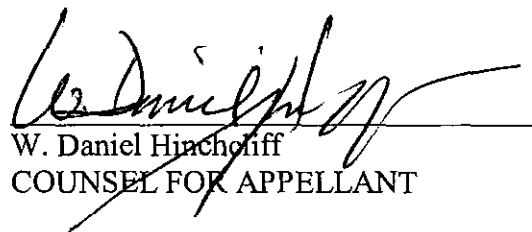 W. Daniel Hinchcliff
COUNSEL FOR APPELLANT